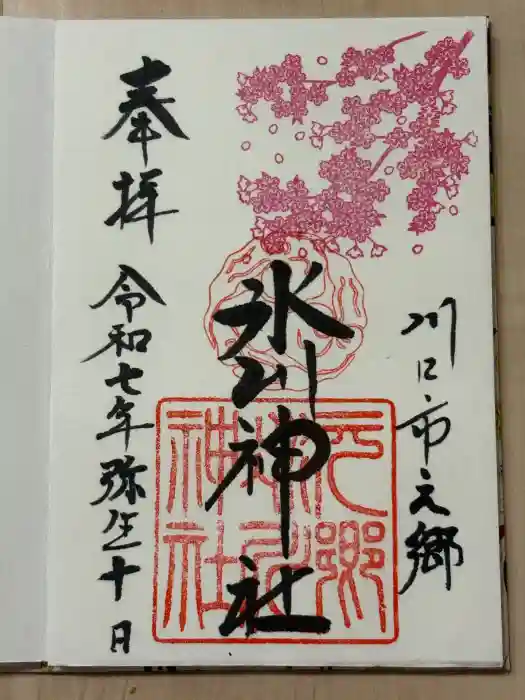 川口市元郷
氷川神社
元郷
氷川
神社
奉拝　令和七年弥生十日